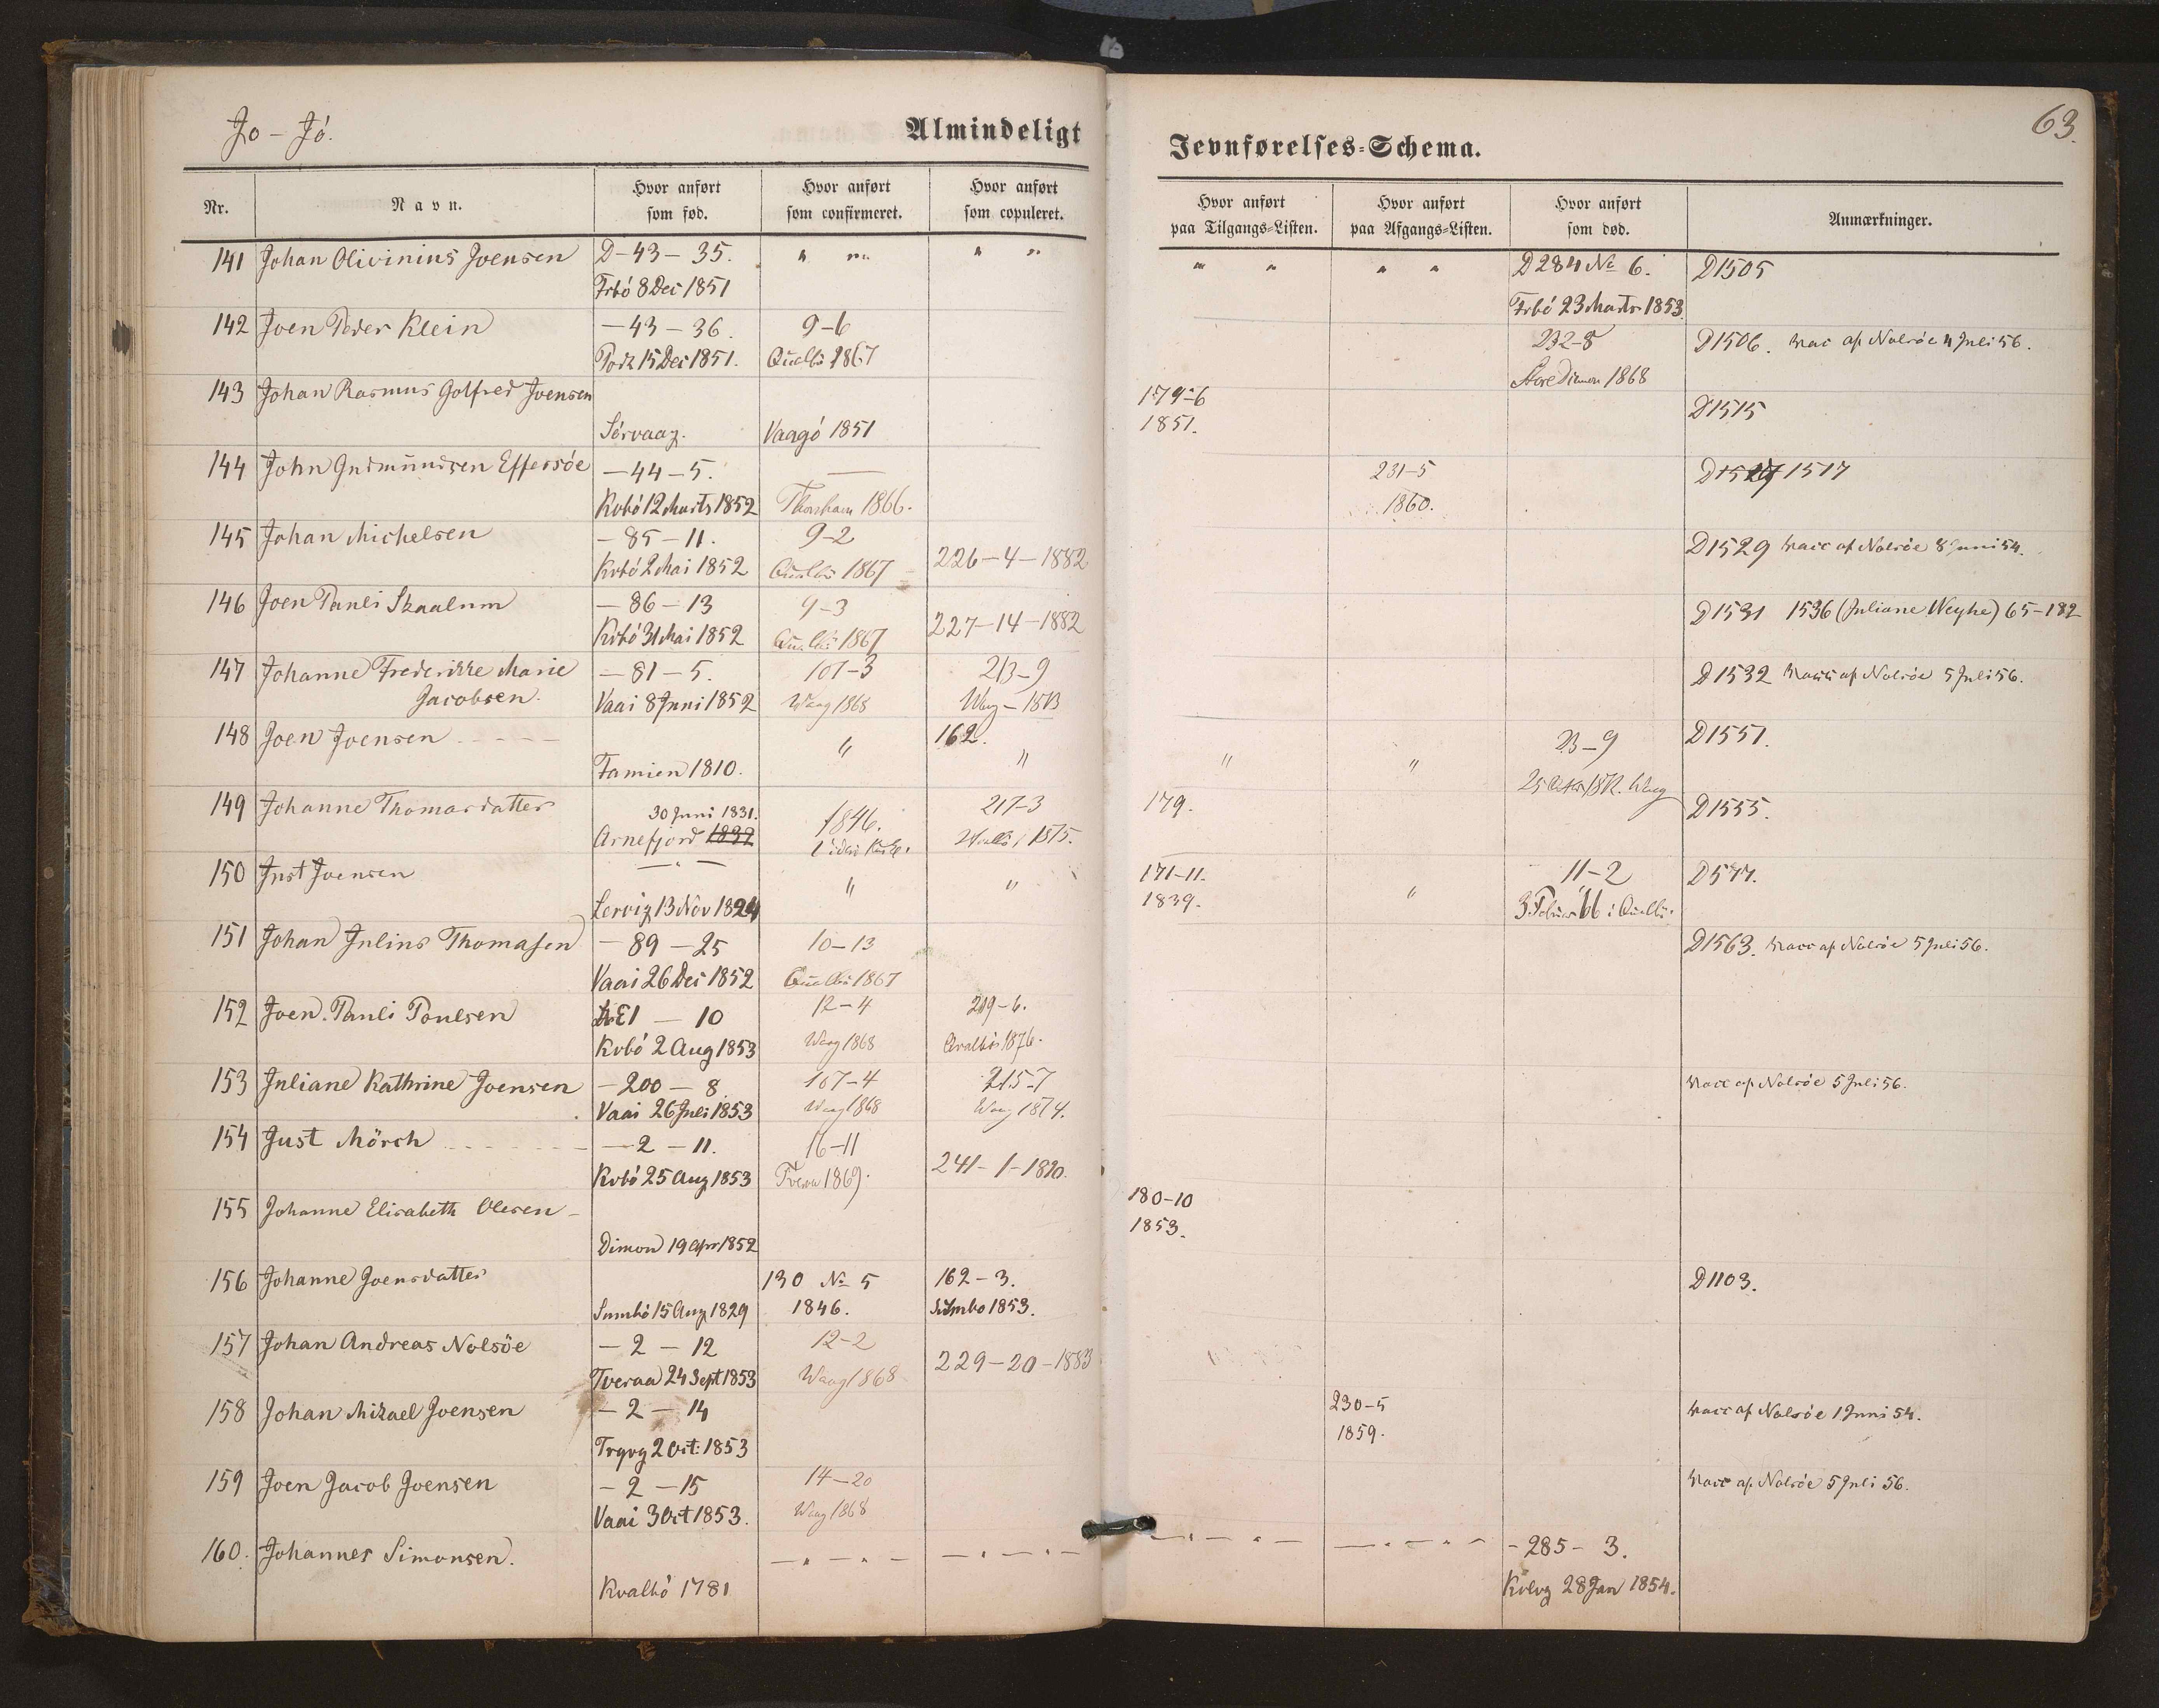 Jo – Jó.
Almindeligt
Jevnførelses-Schema.
63.
Nr.
Navn.
Hvor anført som fød.
Hvor anført som confirmeret.
Hvor anført som copuleret.
Hvor anført paa Tilgangs-Listen.
Hvor anført paa Afgangs-Listen.
Hvor anført som død.
Anmærkninger.
141 Johan Olivinius Joensen D–43–35. " " " " " " " " D284 No 6. D1505
Frbó 8 Dec 1851 Frbó 23 Marts 1853.
142 Joen Peder Klein –43–36. 9–6 232–8 D1506. vac af Nolsóe 4 Juli 56.
Porz 15 Dec 1851. Qualbö 1867 Store Dimon 1868
143 Johan Rasmus Gotfred Joensen 179–6 D1515
Sórvaag. Vaagó 1851 1851.
144 John Gudmundsen Effersöe –44–5. — 231–5 1517
Kvbó 12 Marts 1852 Thorshavn 1866. 1860.
145 Johan Michelsen –85–11. 9–2 226–4–1882 D1529 vacc af Nolsóe 8 Juni 54.
Kvbó 2 Mai 1852 Qualbö 1867
146 Joen Pauli Skaalum –86–13 9–3 227–14–1882 D1531 1536 (Juliane Weyhe) 65–182
Kvbó 31 Mai 1852 Qualbö 1867
147 Johanne Frederikke Marie –81–5. 107–3 213–9 D1532 vacc af Nolsóe 5 Juli 56.
Jacobsen. Vaai 8 Juni 1852 Waag 1868 Waag – 1873
148 Joen Joensen " 162. 23–9 D1551.
Famien 1810. " " " 1872. Waag
149 Johanne Thomasdatter 30 Juni 1831. 1846. 217–3 179. D1555.
Arnefjord 1832 1875.
150 Just Joensen — " — " " 171–11. " 11–2 D577.
Lervig 13 Nov 1824 1839. 3 Februar 66 i Qualbö.
151 Johan Julius Thomasen –89–25 10–13 D1563. vacc af Nolsóe 5 Juli 56.
Vaai 26 Dec 1852 Qualbö 1867
152 Joen Pauli Poulsen E1 – 10 12–4 219–6.
Kvbó 2 Aug 1853 Waag 1868 Qvalbö 1876.
153 Juliane Kathrine Joensen –200–8. 107–4 215–7 vacc af Nolsóe 5 Juli 56.
Vaai 26 Juli 1853 Waag 1868 Waag 1874.
154 Just Mörch –2–11. 16–11 241–1–1890.
Kvbó 25 Aug 1853 Tveraa 1869.
155 Johanne Elisabeth Olesen – 180–10
Dimon 19 Apr 1852 1853.
156 Johanne Joensdatter 130 No 5 162–3. D1103.
Sumbó 15 Aug 1829 1846. Sumbo 1853.
157 Johan Andreas Nolsöe –2–12 12–2 229–20–1883
Tveraa 24 Sept 1853 Waag 1868
158 Johan Mikael Joensen –2–14 230–5 vacc af Nolsóe 1 Juni 54.
Trgvg 2 Oct. 1853 1859.
159 Joen Jacob Joensen –2–15 14–20 vacc af. Nolsóe 5 Juli 56.
Vaai 3 Oct 1853. Waag 1868
160. Johannes Simonsen. –"–"– –"–"– –"–"– –"–"– –285–3.
Kvalbó 1781 Kvlvg 28 Jan 1854.